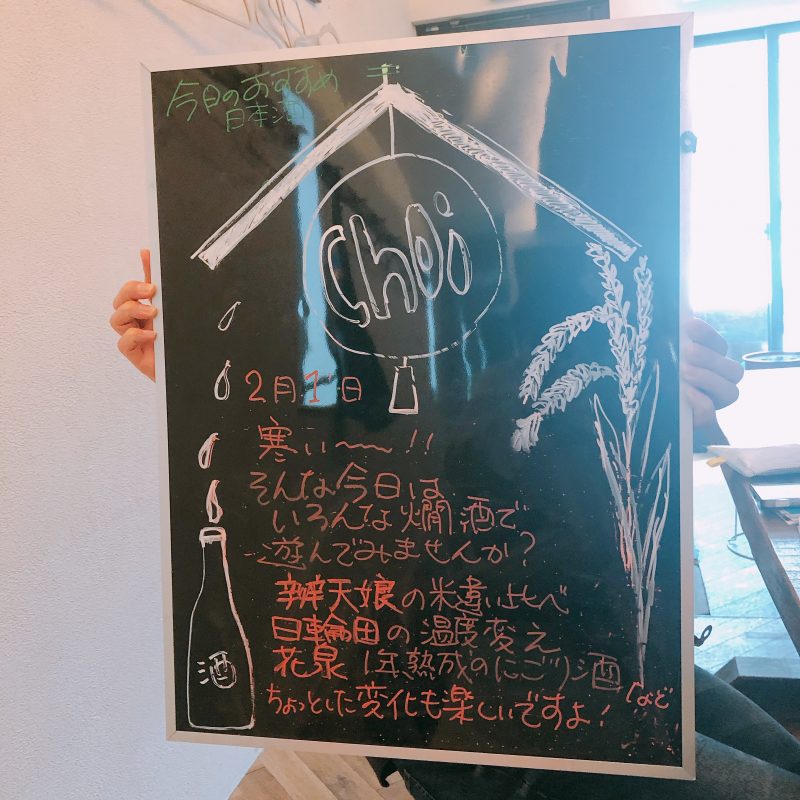 今日のおすすめ
日本酒
choi
2月1日
寒い〜!!
そんな今日は
いろんな燗酒で
遊んでみませんか?
辨天娘の米違い比べ
日輪田の温度変え
花泉 1年熟成のにごり酒
など
ちょっとした変化も楽しいですよ!
酒